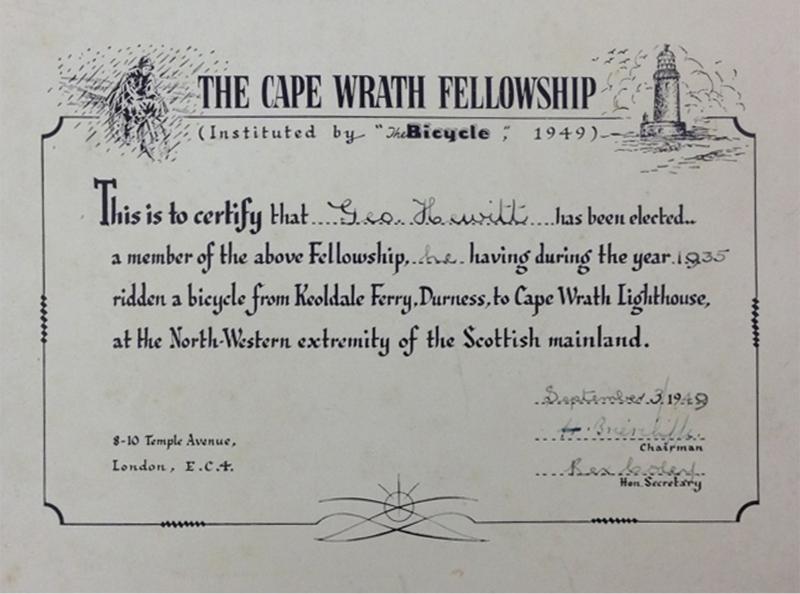 THE CAPE WRATH FELLOWSHIP
(Instituted by "The Bicycle", 1949)
This is to certify that Geo. Hewitt has been elected
a member of the above Fellowship, he having during the year 1935
ridden a bicycle from Keoldale Ferry, Durness, to Cape Wrath Lighthouse,
at the North-Western extremity of the Scottish mainland.
September 3, 1949
Chairman
8-10 Temple Avenue,
London, E.C.4.
Rex Coley
Hon. Secretary